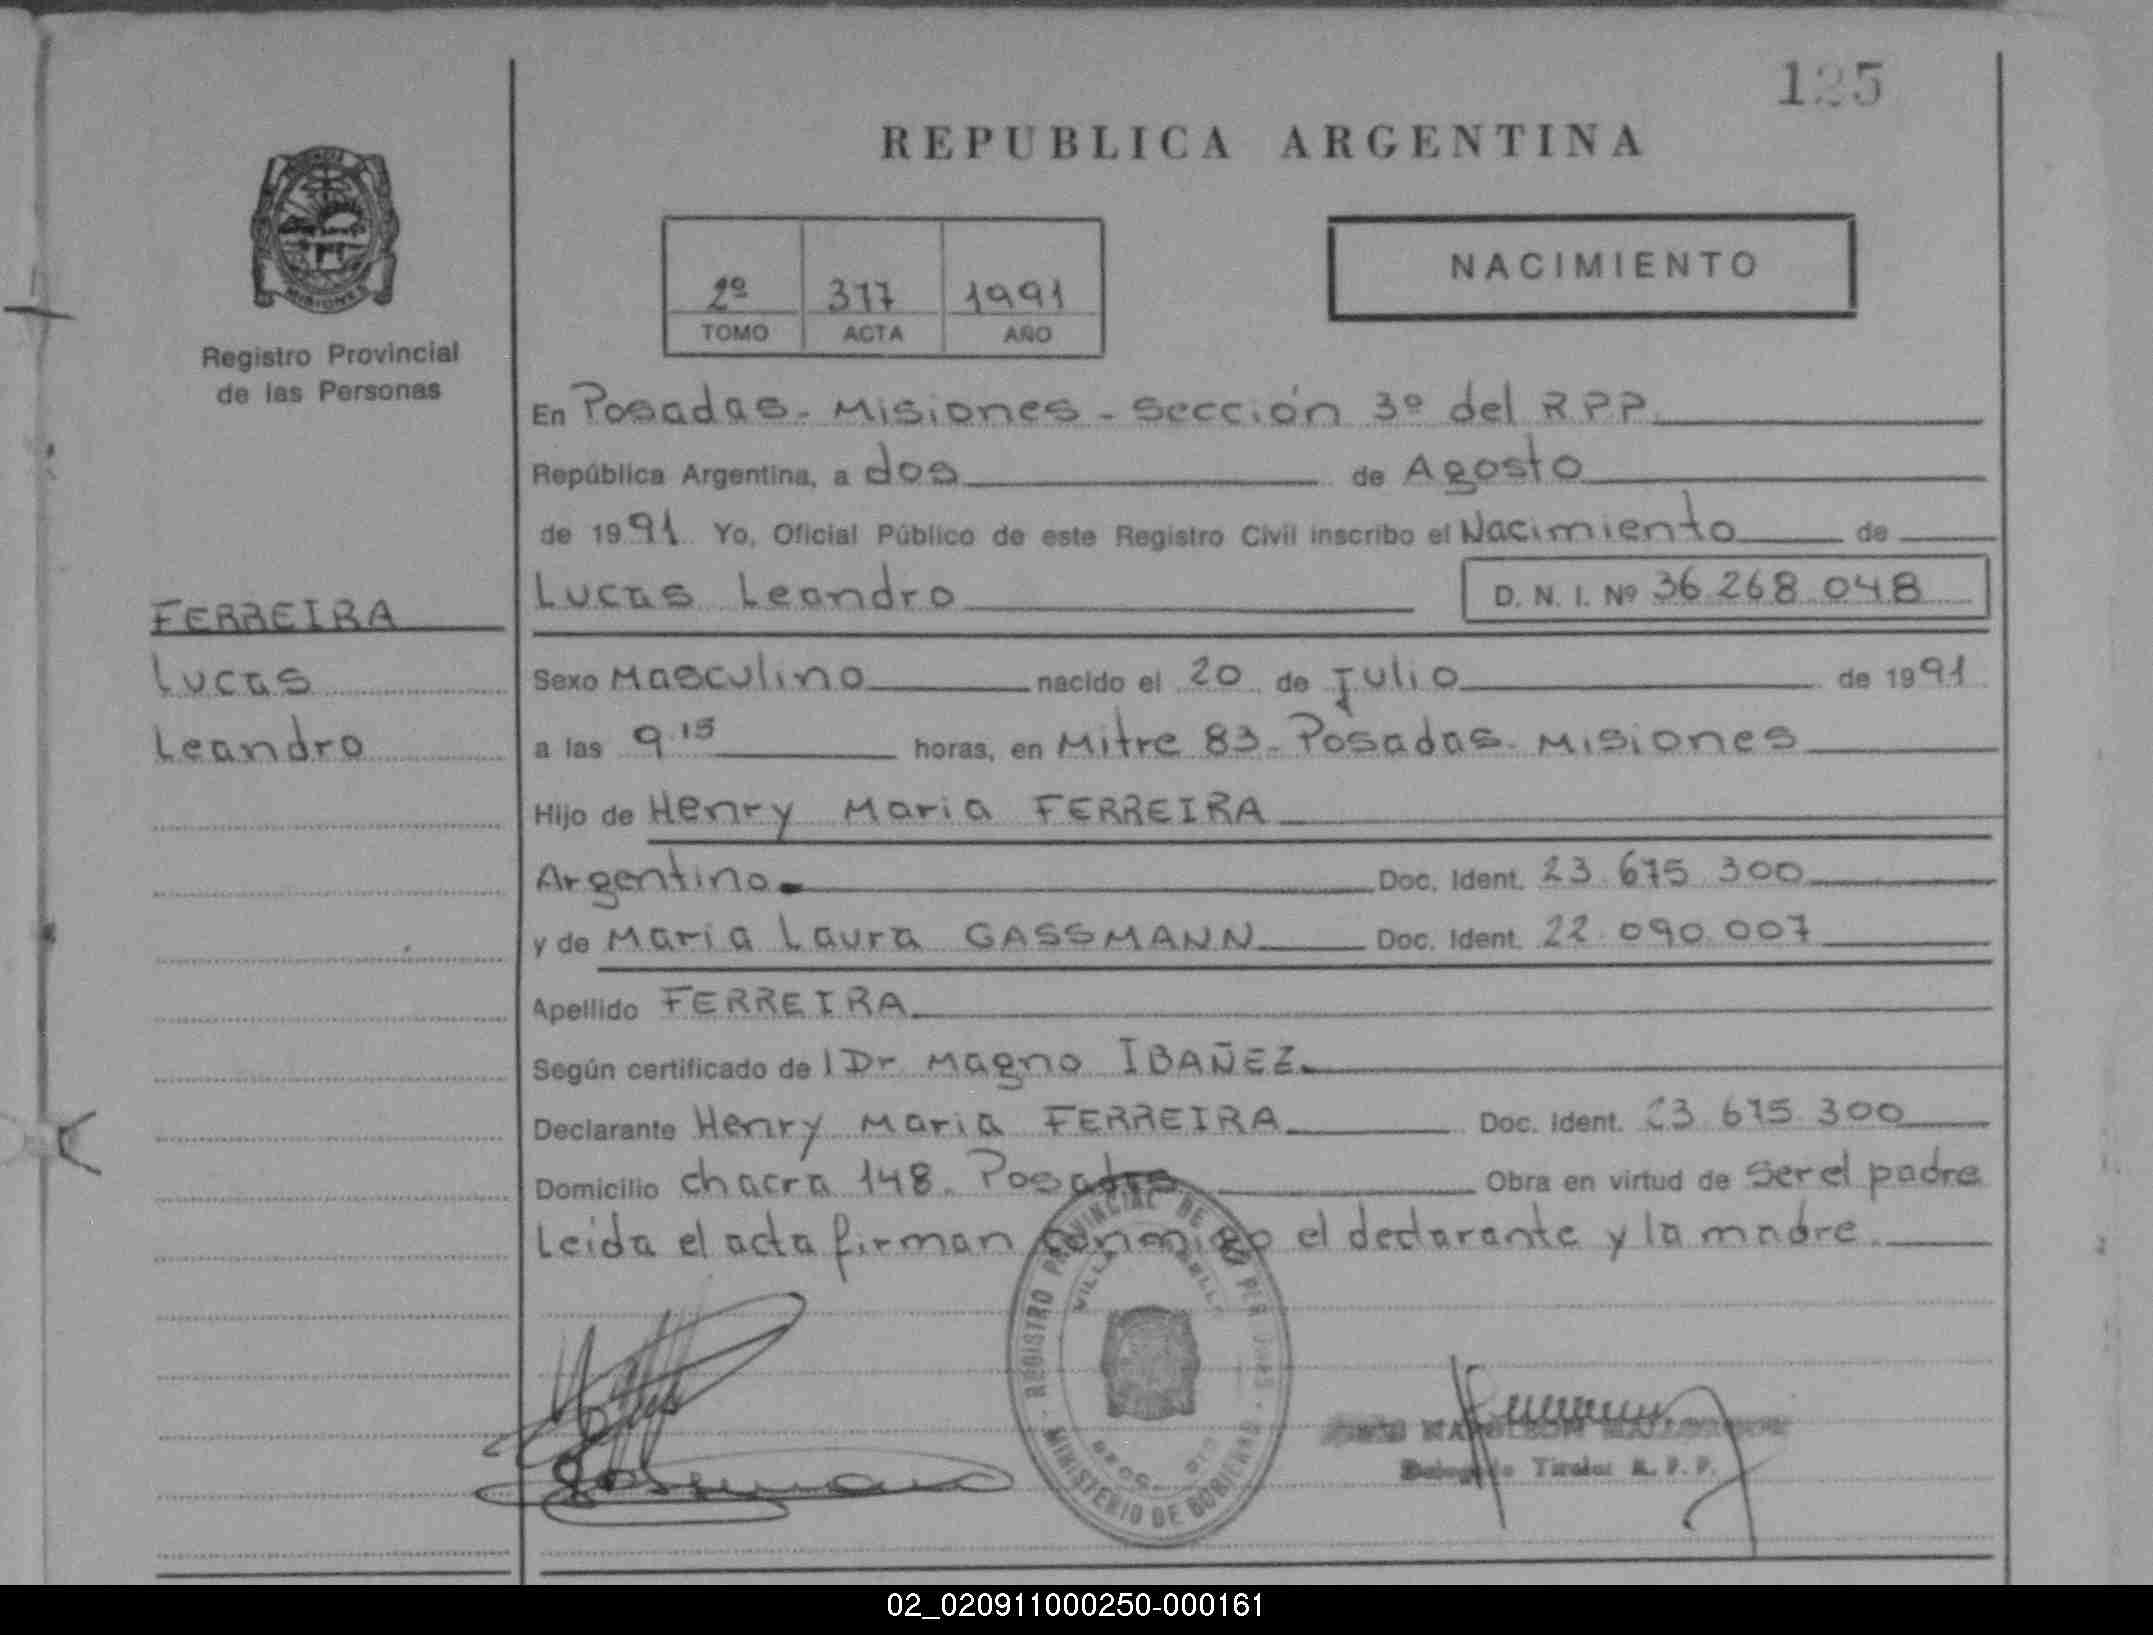 125
REPUBLICA ARGENTINA
MISIONES
Registro Provincial
de las Personas
2º 317 1991
TOMO ACTA AÑO
NACIMIENTO
En Posadas - Misiones - Sección 3º del RPP
República Argentina, a dos de Agosto
de 1991 Yo, Oficial Público de este Registro Civil inscribo el Nacimiento de
Lucas Leandro D. N. I. Nº 36 268 048
FERREIRA
Lucas
Leandro
Sexo Masculino nacido el 20 de Julio de 1991
a las 9 15 horas, en Mitre 83 - Posadas - Misiones
Hijo de Henry Maria FERREIRA
Argentino Doc. Ident. 23 675 300
y de Maria Laura GASSMANN Doc. Ident. 22 090 007
Apellido FERREIRA
Según certificado de l Dr Magno IBAÑEZ
Declarante Henry Maria FERREIRA Doc. Ident. 23 675 300
Domicilio chacra 148. Posadas Obra en virtud de ser el padre
Leida el acta firman conmigo el declarante y la madre.
REGISTRO PROVINCIAL DE
MINISTERIO DE GOBIERNO
Titular R. P. P.
02_020911000250-000161